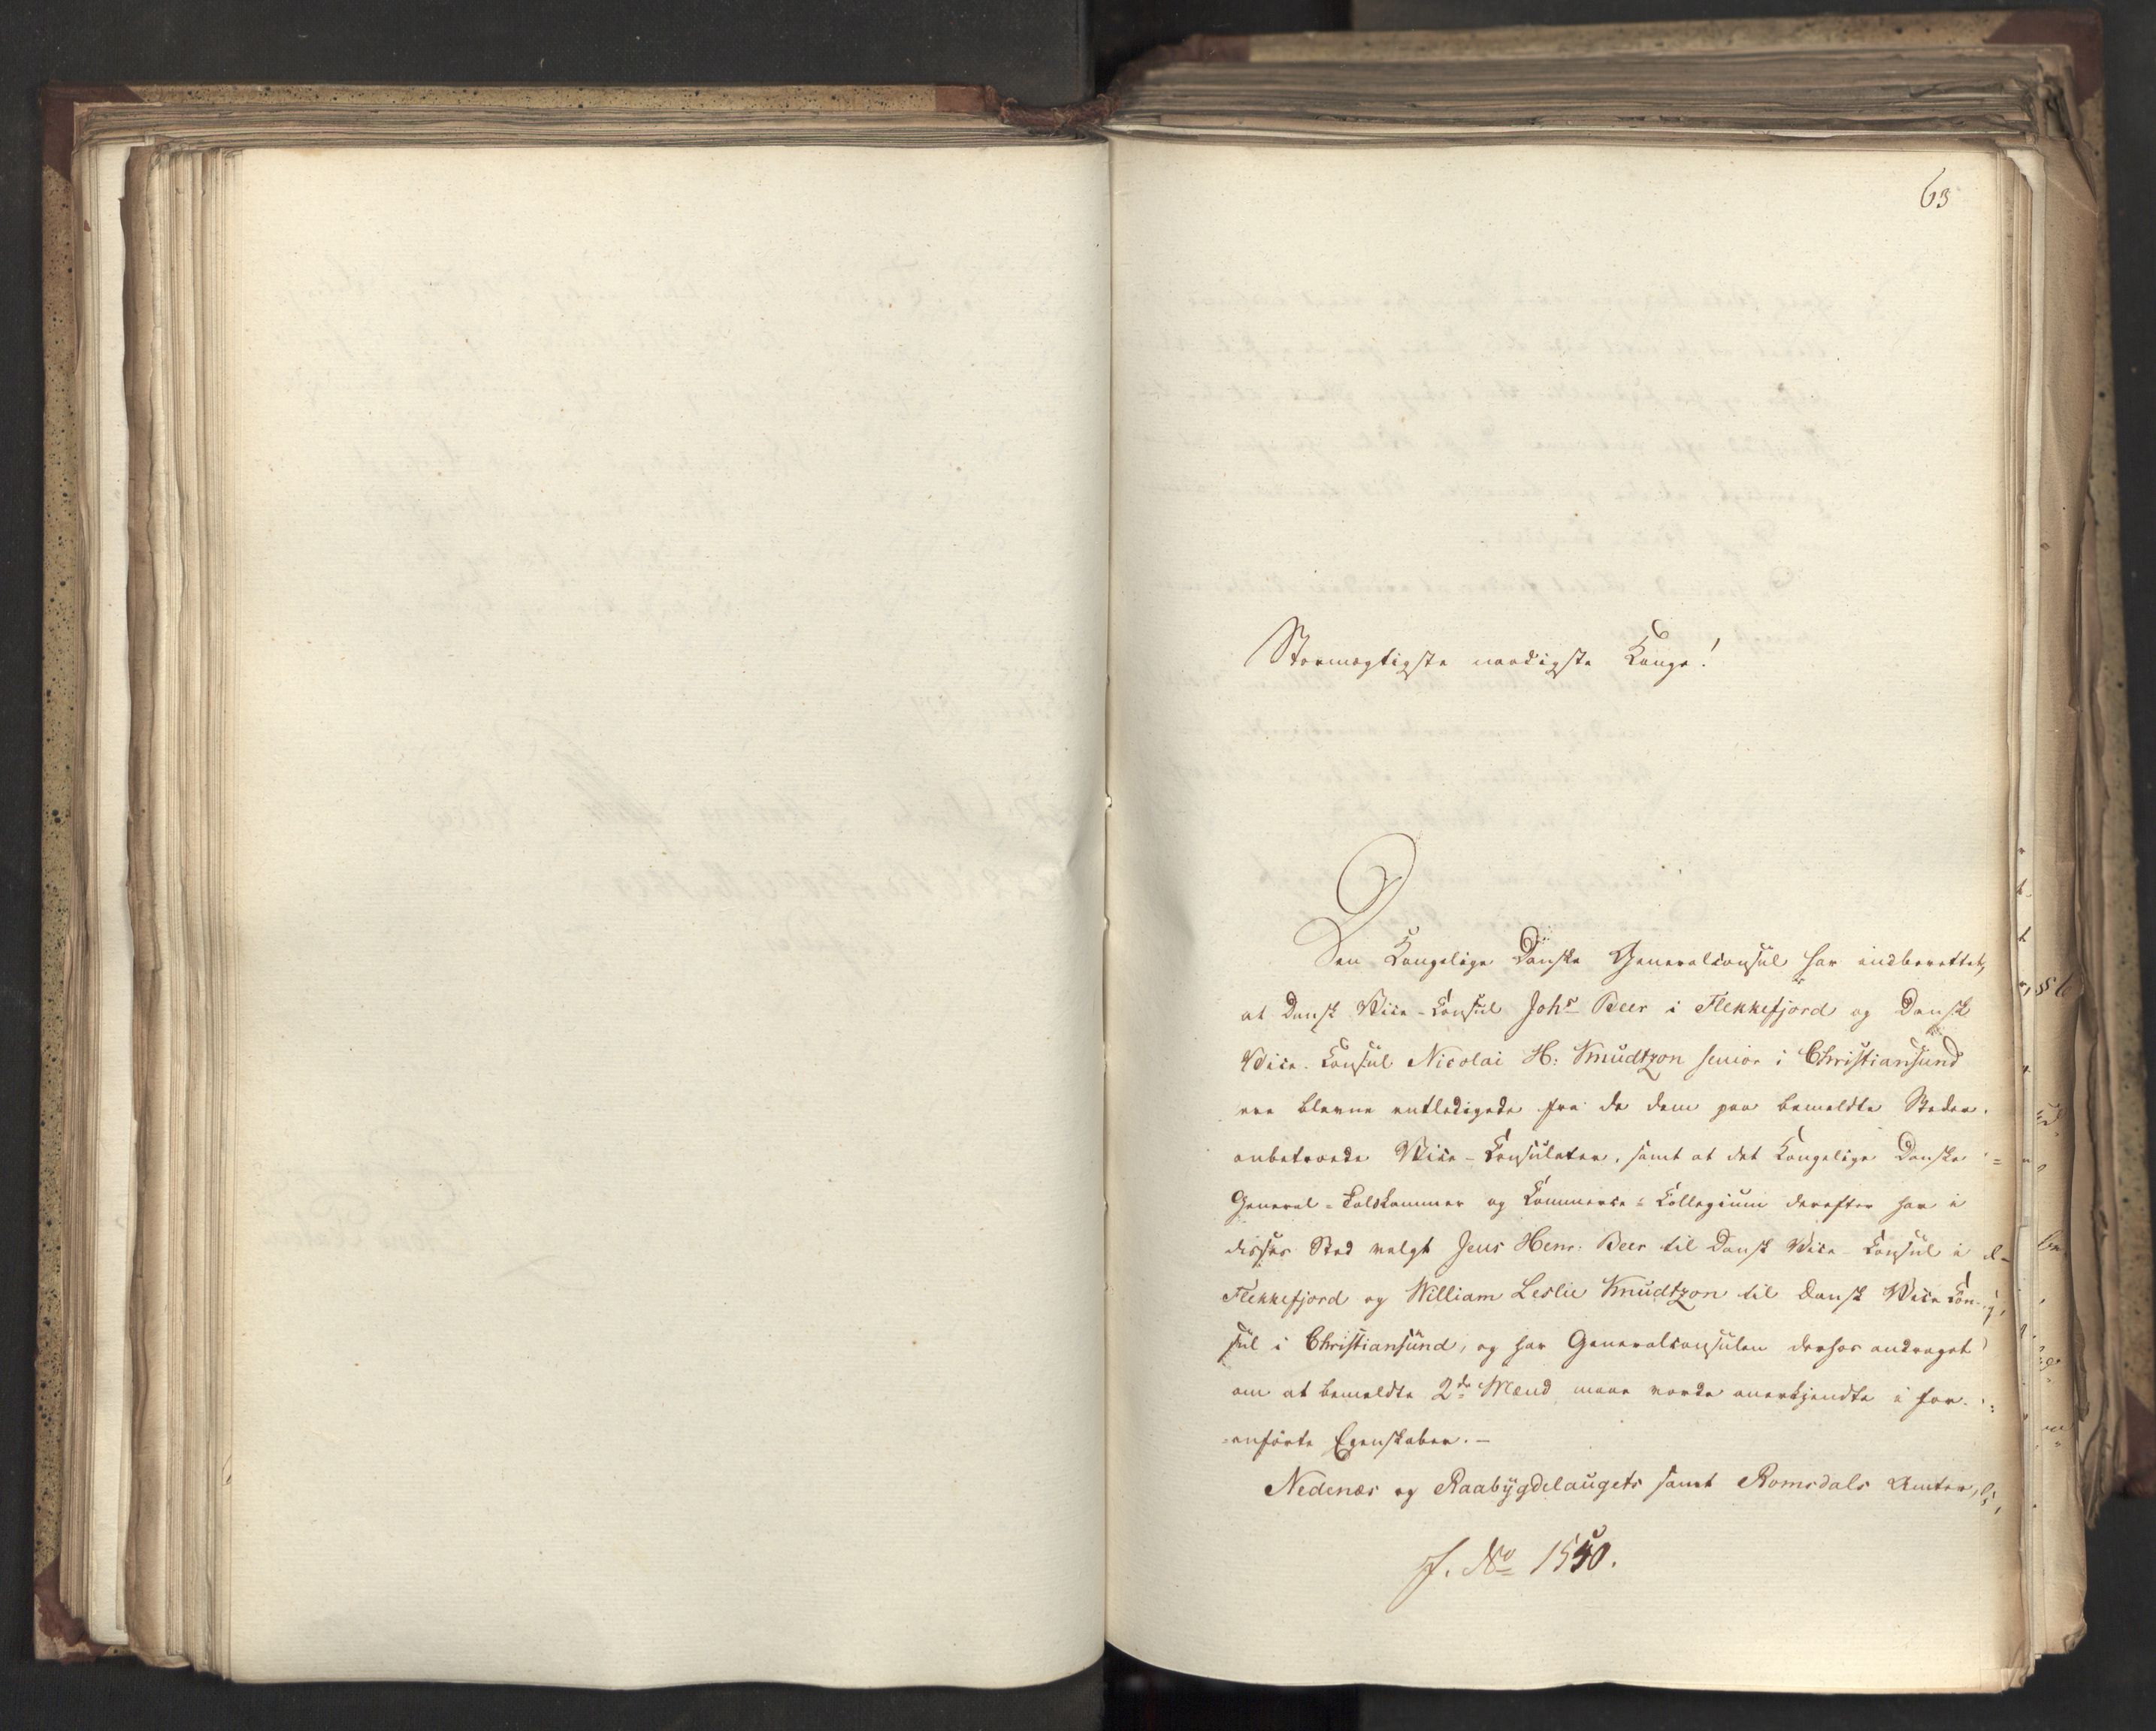 63
Stormægtigste naadigste Konge!
Den Kongelige Danske Generalconsul har indberettet,
at Dansk Vice-Consul Johs Beer i Flekkefjord og Dansk
Vice-Consul Nicolai H: Knudtzon senior i Christiansund
ere blevne entledigede fra de dem paa bemeldte Steder
anbetroede Vice-Consulater, samt at det Kongelige Danske
General-Toldkammer og Kommerce-Collegium derefter har i
disses Sted valgt Jens Henr. Beer til Dansk Vice-Consul i
Flekkefjord og William Leslie Knudtzon til Dansk Vice Con-
sul i Christiansund, og har Generalconsulen derhos andraget
om at bemeldte 2de Mænd maae vorde anerkjendte i for-
anførte Egenskaber. —
Nedenæs og Raabygdelaugets samt Romsdals Amter,
J. No 1550.